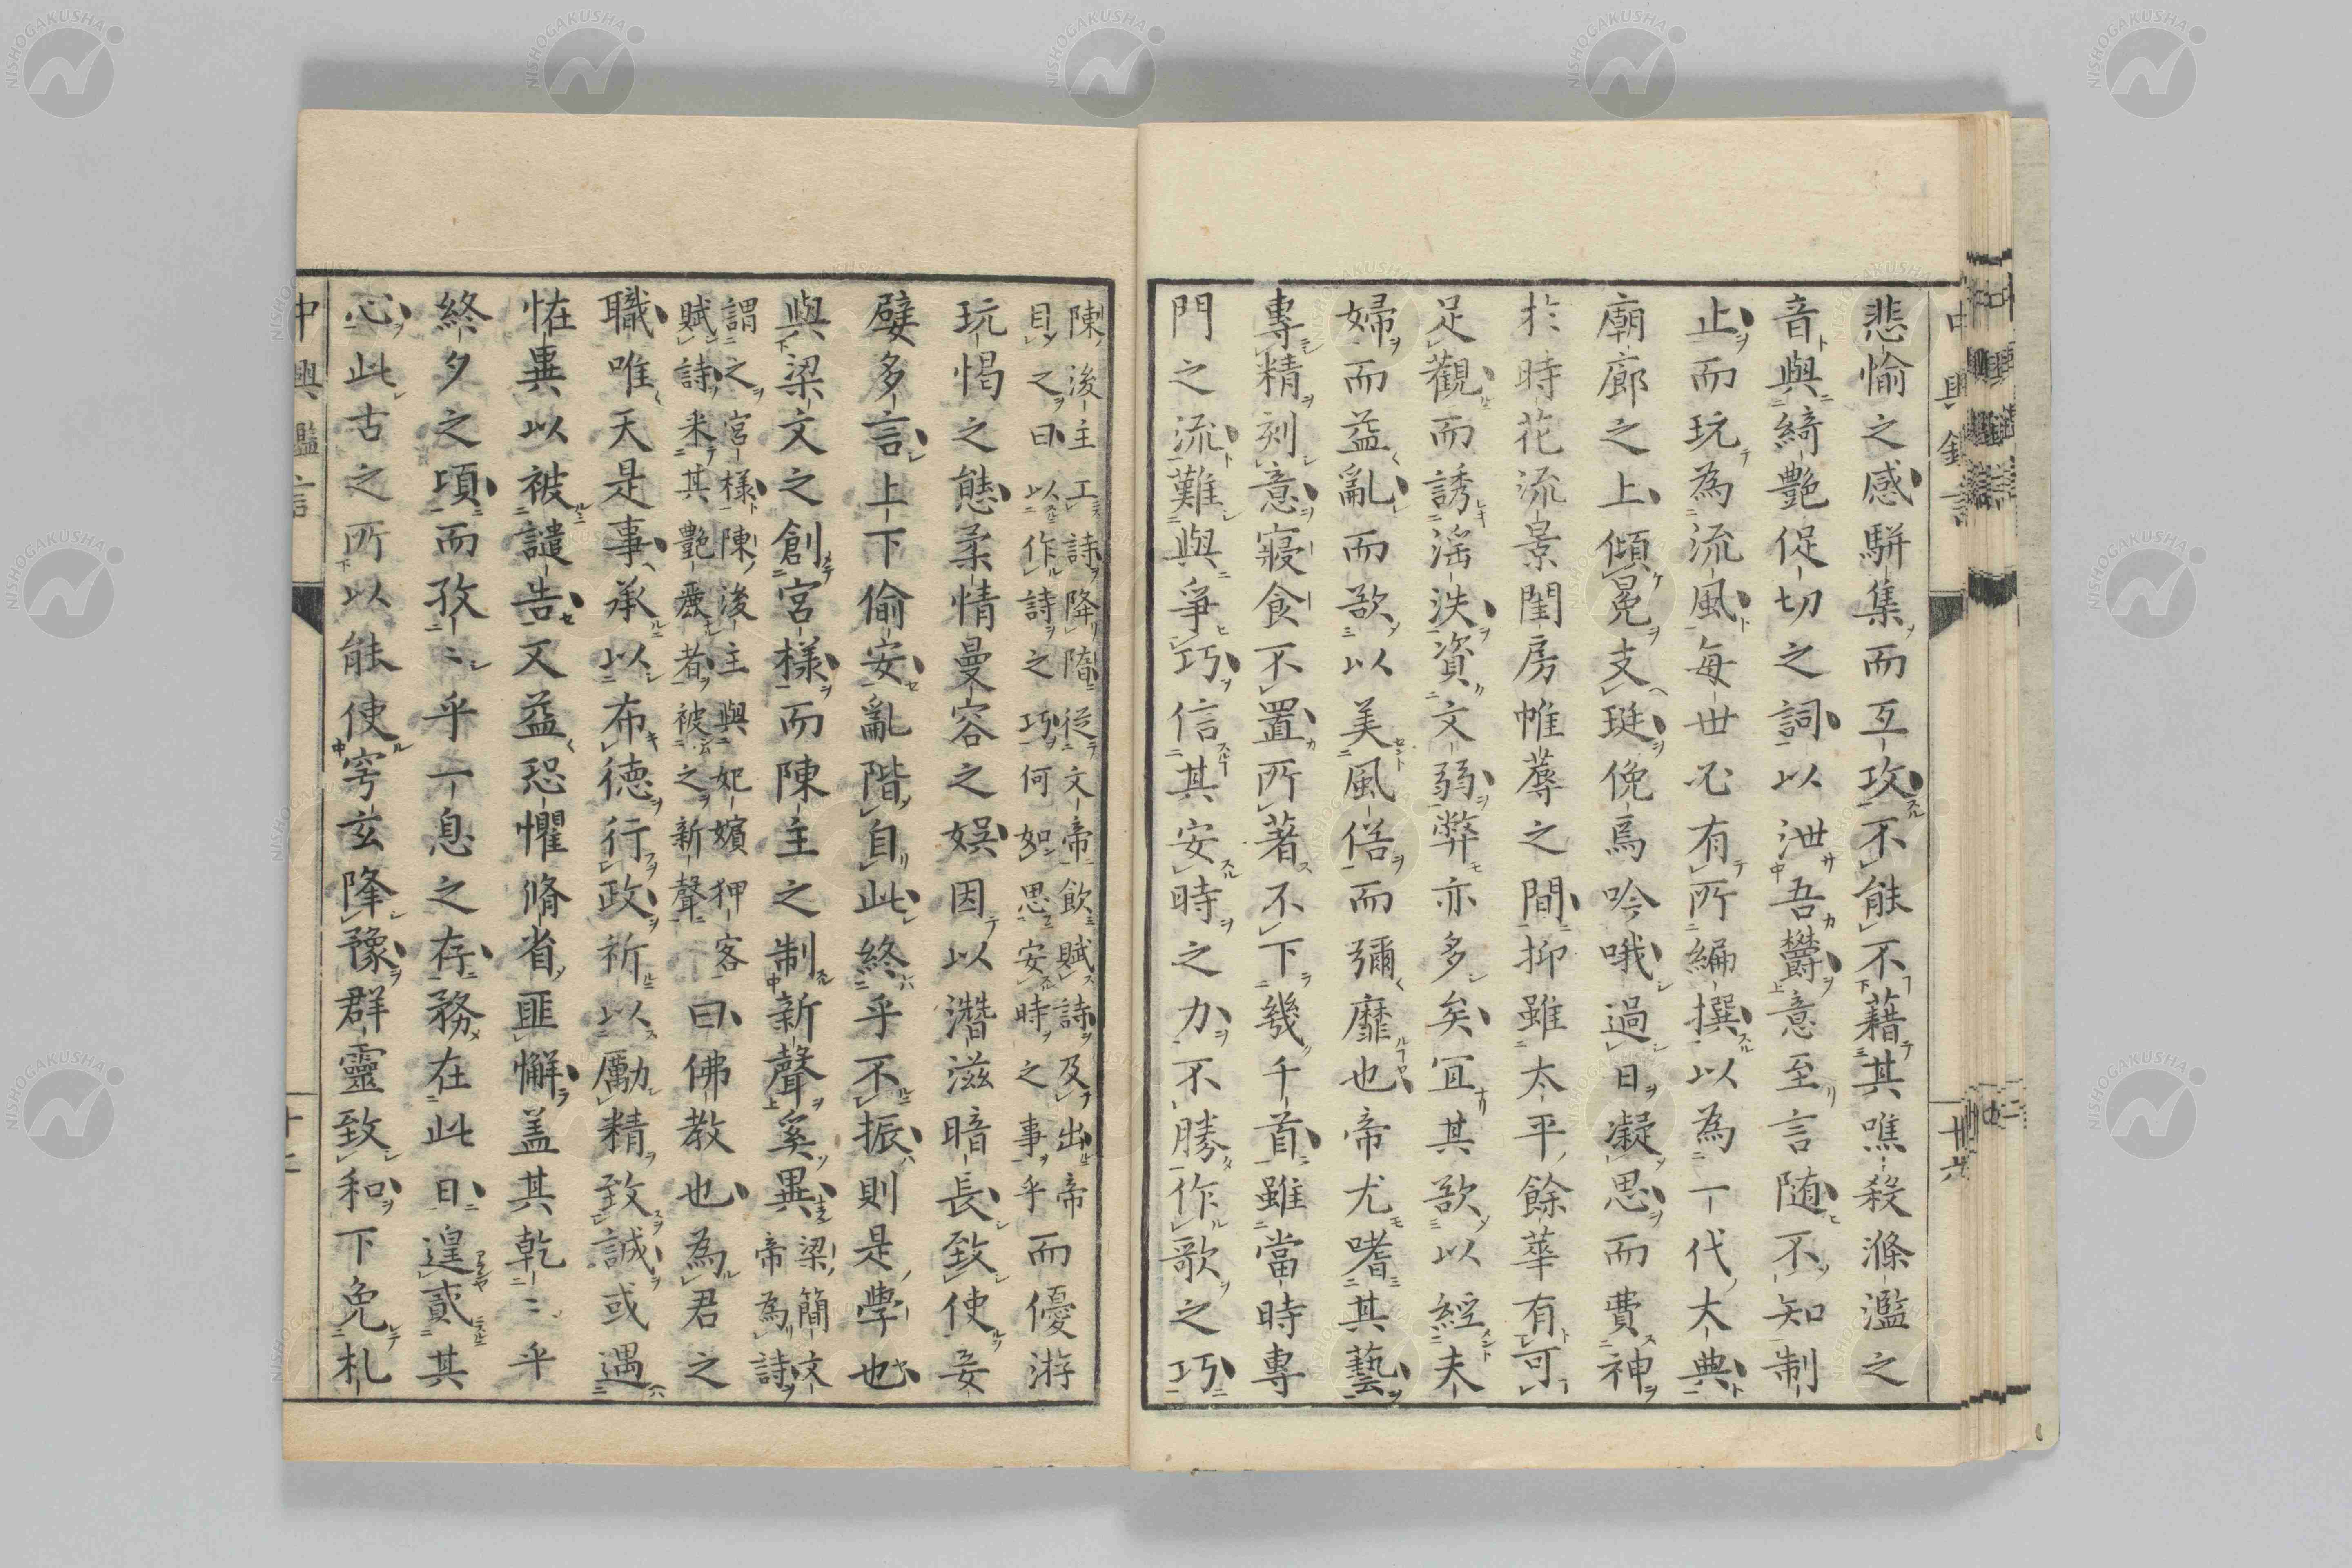 悲愉之感駢集而互攻不能不藉其噍殺滌濫之
音與綺艷促切之詞以泄吾欝意至言随不知制
止而玩為流風每世必有所編撰以為一代大典
廟廊之上傾冕支珽俛焉吟哦過日凝思而費神
於時花流景閨房帷蓐之間抑雖太平餘華有可
足觀而誘滛泆資文弱弊亦多矣冝其欲以經夫
婦而益亂而欲以美風俗而彌靡也帝尤嗜其藝
專精刻意寢食不置所著不下幾千首雖當時專
門之流難與爭巧信其安時之力不勝作歌之巧
陳後主工詩降隋從文帝飲賦詩及出帝
目之曰以作詩之巧何如思安時之事乎
而優游
玩愒之態柔情曼容之娯因以潛滋暗長致使妾
嬖多言上下偷安亂階自此終乎不振則是學也
與梁文之創宮樣而陳主之制新聲奚異
梁簡文
帝為詩
謂之宮樣陳後主與妃嬪狎客
賦詩采其艷麗者被之新聲
曰佛教也為君之
職唯天是事承以布德行政祈以勵精致誠或遇
恠異以被譴告又益恐懼脩省匪懈盖其乾〻乎
終夕之頃而孜〻乎一息之存務在此日遑貳其
心此古之所以能使穹玄降豫群靈致和下免札
中興鑑言